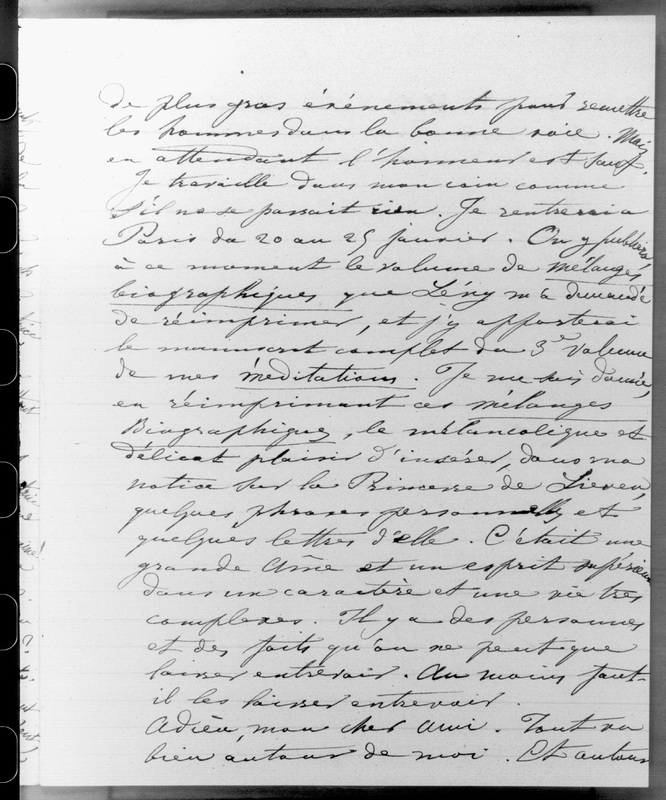 de plus gros événements pour remettre
les hommes dans la bonne voie. Mais
en attendant l'honneur est sauf.
Je travaille dans mon coin comme
s'il ne se passait rien. Je rentrerai a
Paris du 20 au 25 janvier. On y publiera
à ce moment le volume de mélanges
biographiques que Lévy m'a demandé
de réimprimer, et j'y apporterai
le manuscrit complet du 3e volume
de mes méditations. Je me suis donné,
en réimprimant ces mélanges
Biographiques, le mélancolique et
délicat plaisir d'insérer, dans ma
notice sur la Princesse de Lieven,
quelques phrases personnelles et
quelques lettres d'elle. C'était une
grande âme et un esprit supérieur
dans un caractère et une vie très
complexes. Il y a des personnes
et des faits qu'on ne peut que
laisser entrevoir. Au moins faut-
il les laisser entrevoir.
Adieu, mon cher ami. Tout va
bien autour de moi. Et autour